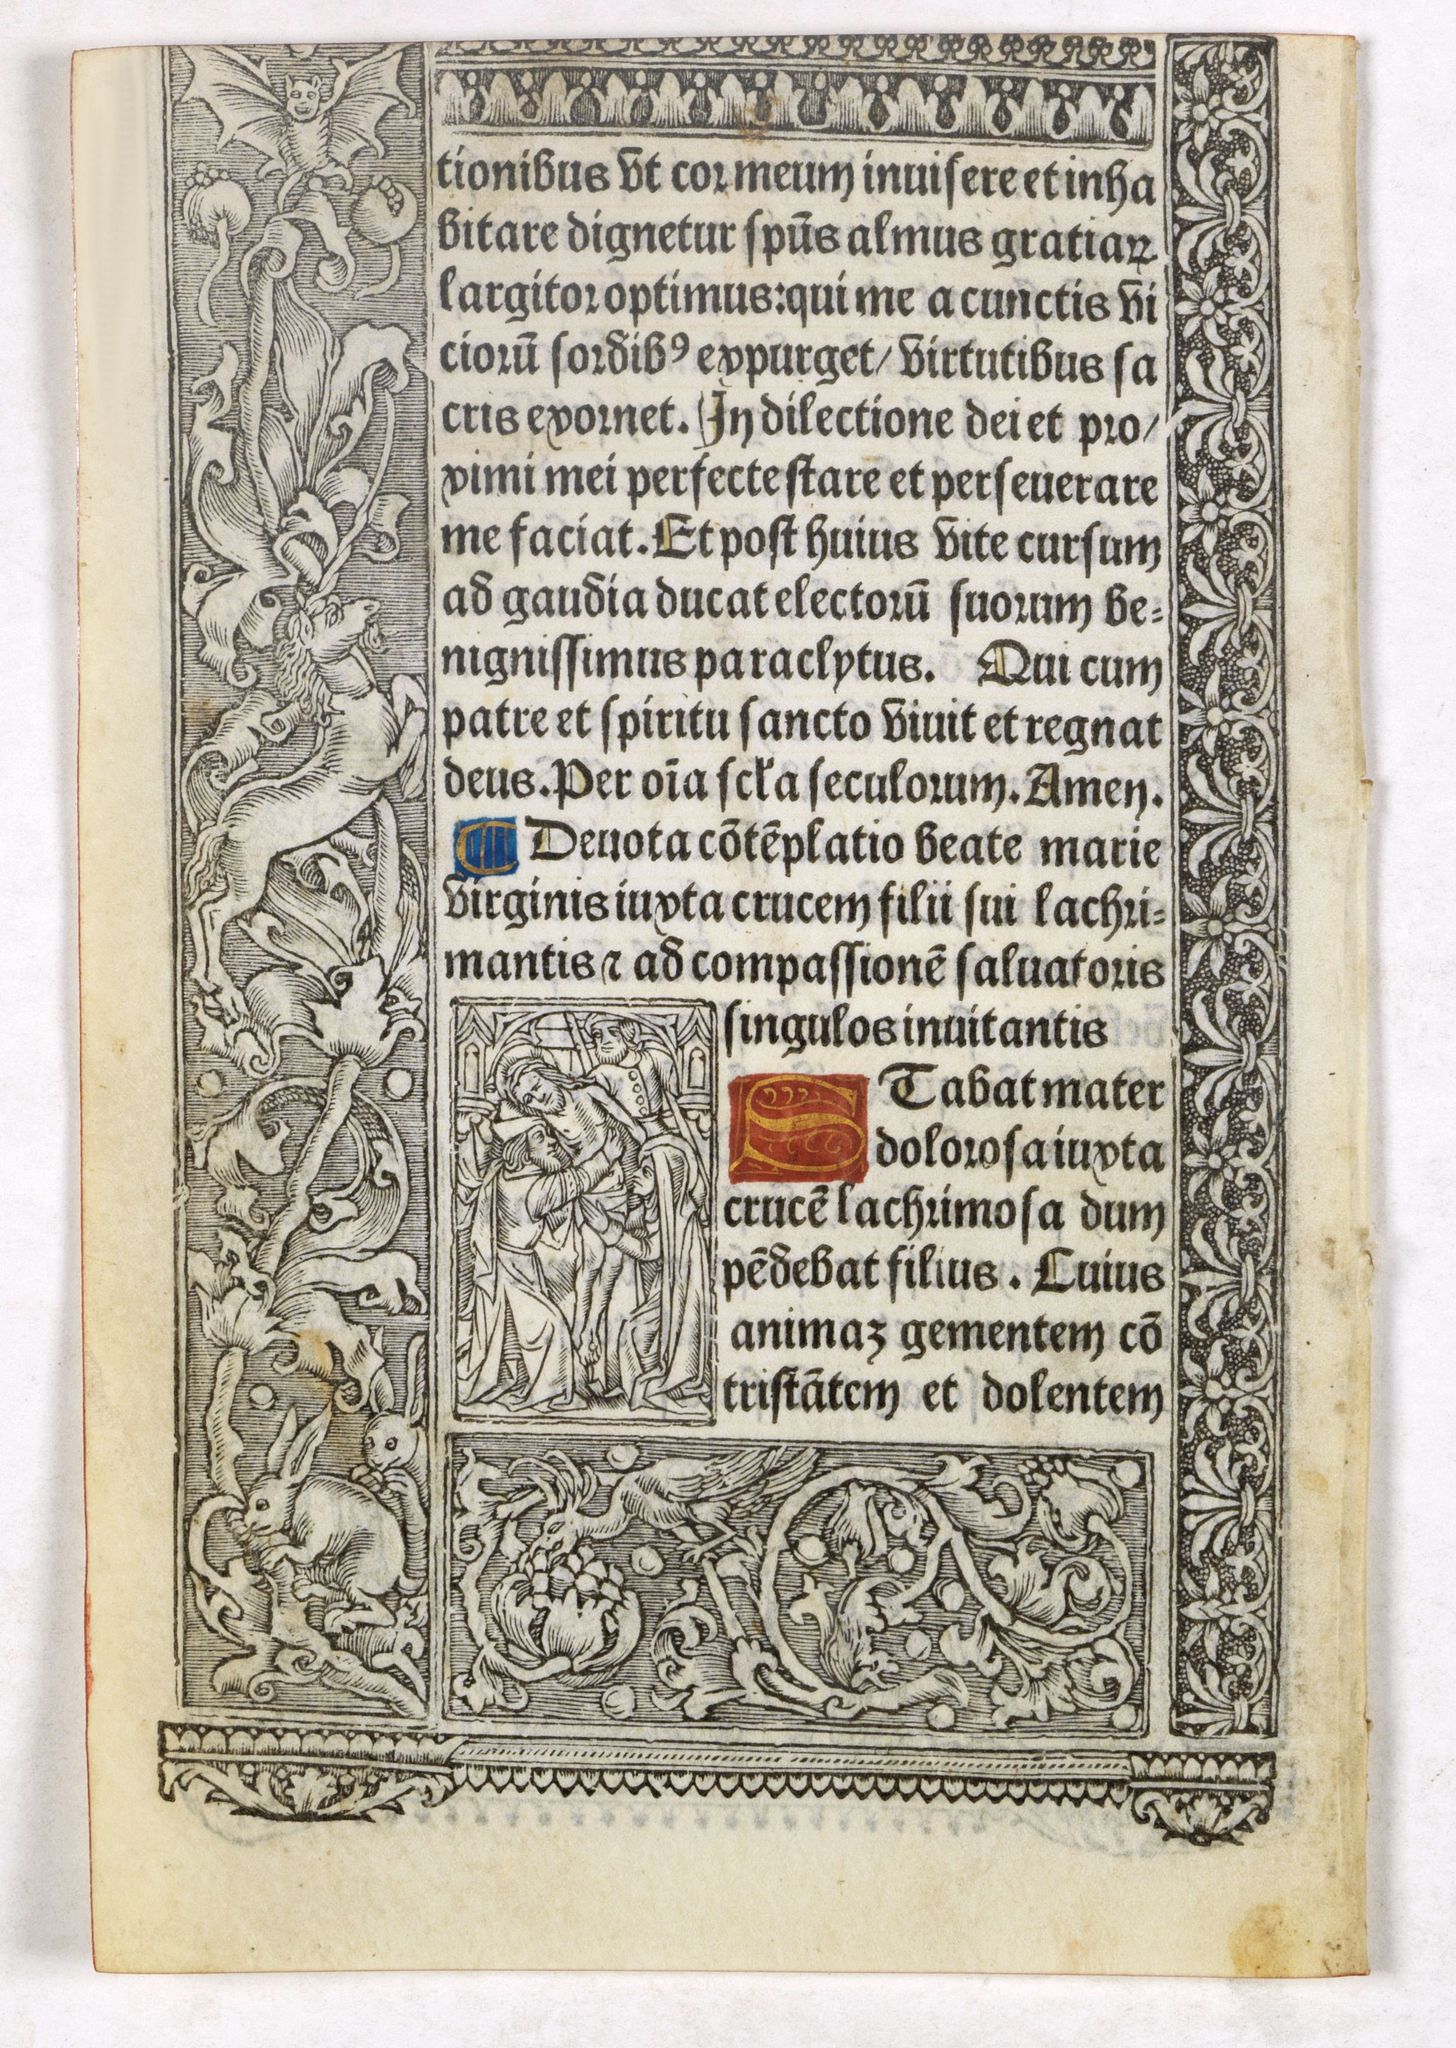 tionibus vt cor meum inuisere et inha
bitare dignetur spūs almus gratiaꝝ
largitor optimus: qui me a cunctis vi
ciorū sordibꝰ expurget/ virtutibus sa
cris exornet. In dilectione dei et pro/
ximi mei perfecte stare et perseuerare
me faciat. Et post huius vite cursum
ad gaudia ducat electorū suorum be=
nignissimus paraclytus. Qui cum
patre et spiritu sancto viuit et regnat
deus. Per oīa scła seculorum. Amen.
¶ Deuota cōtēplatio beate marie
virginis iuxta crucem filii sui lachri=
mantis ⁊ ad compassionē saluatoris
singulos inuitantis
STabat mater
dolorosa iuxta
crucē lachrimosa dum
pēdebat filius. Cuius
animaꝫ gementem cō
tristātem et dolentem